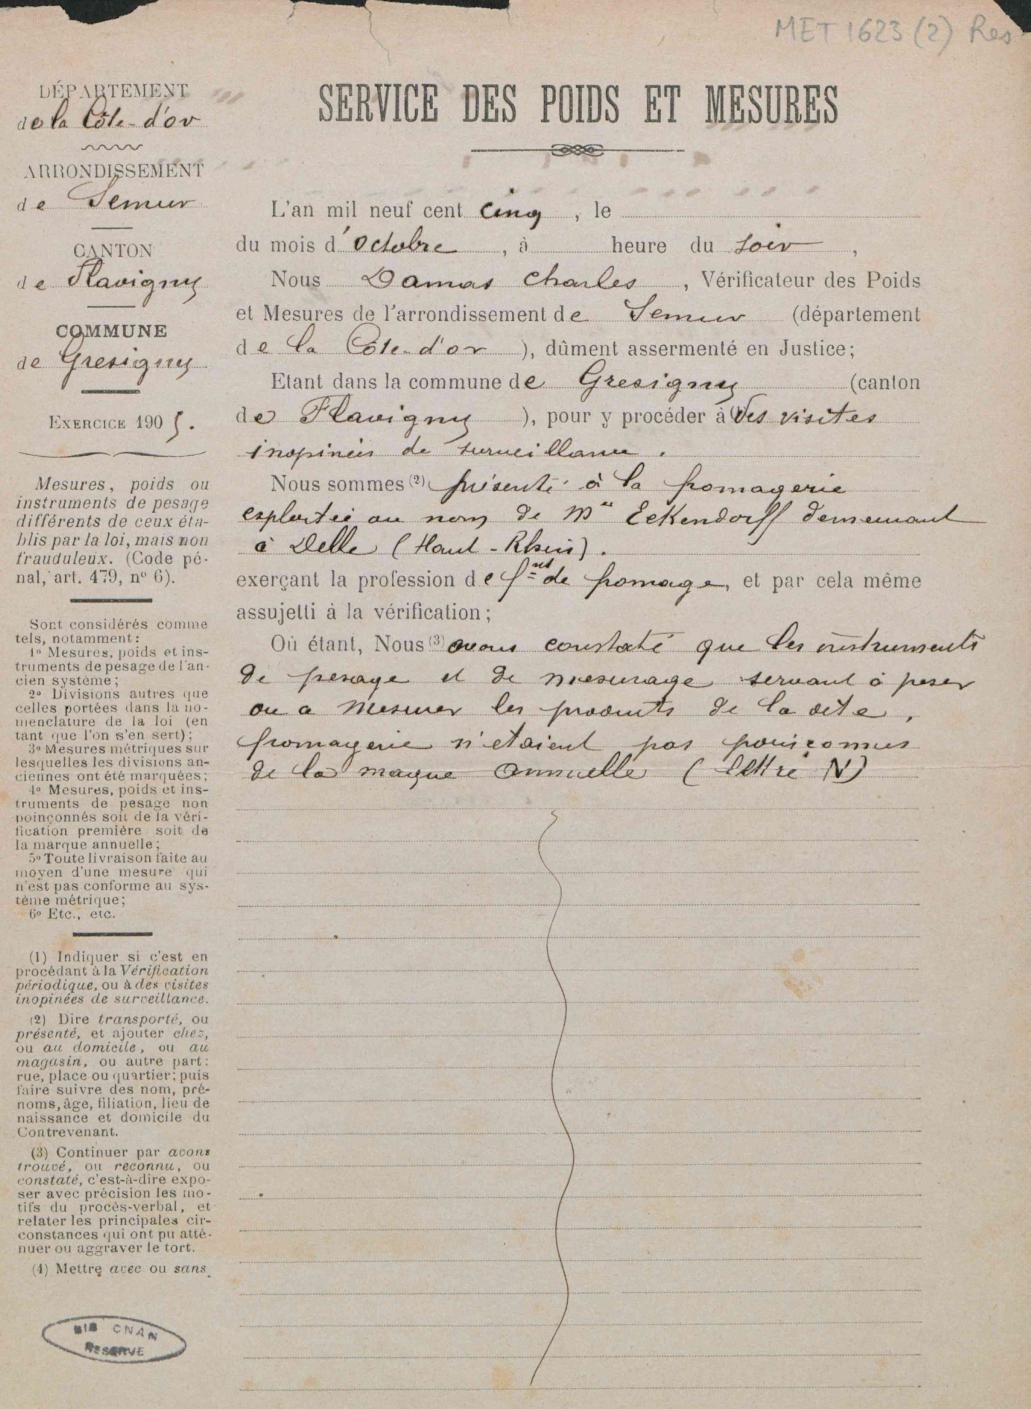 MET 1623 (2) Res
DÉPARTEMENT
de la Côte-d'or
ARRONDISSEMENT
de Semur
CANTON
de Flavigny
COMMUNE
de Gresigny
EXERCICE 1905.
Mesures, poids ou
instruments de pesage
différents de ceux éta-
blis par la loi, mais non
frauduleux. (Code pé-
nal, art. 479, n° 6).
Sont considérés comme
tels, notamment:
1° Mesures, poids et ins-
truments de pesage de l'an-
cien système;
2° Divisions autres que
celles portées dans la no-
menclature de la loi (en
tant que l'on s'en sert);
3° Mesures métriques sur
lesquelles les divisions an-
ciennes ont été marquées;
4° Mesures, poids et ins-
truments de pesage non
poinçonnés soit de la véri-
fication première soit de
la marque annuelle;
5° Toute livraison faite au
moyen d'une mesure qui
n'est pas conforme au sys-
tème métrique;
6° Etc., etc.
(1) Indiquer si c'est en
procédant à la Vérification
périodique, ou à des visites
inopinées de surveillance.
(2) Dire transporté, ou
présenté, et ajouter chez,
ou au domicile, ou au
magasin, ou autre part:
rue, place ou quartier; puis
faire suivre des nom, pré-
noms, âge, filiation, lieu de
naissance et domicile du
Contrevenant.
(3) Continuer par avons
trouvé, ou reconnu, ou
constaté, c'est-à-dire expo-
ser avec précision les mo-
tifs du procès-verbal, et
relater les principales cir-
constances qui ont pu atté-
nuer ou aggraver le tort.
(4) Mettre avec ou sans
BIB CNAM
RESERVE
SERVICE DES POIDS ET MESURES
L'an mil neuf cent cinq, le
du mois d'octobre, à heure du soir,
Nous Damas Charles, Vérificateur des Poids
et Mesures de l'arrondissement de Semur (département
de la Côte-d'or), dûment assermenté en Justice;
Etant dans la commune de Gresigny (canton
de Flavigny), pour y procéder à des visites
inopinées de surveillance.
Nous sommes (2) présenté à la fromagerie
exploitée au nom de Mr Eckendorff demeurant
à Delle (Haut-Rhin).
exerçant la profession de fnt de fromage, et par cela même
assujetti à la vérification;
Où étant, Nous (3) avons constaté que les instruments
de pesage et de mesurage servant à peser
ou a mesurer les produits de la dite
fromagerie n'étaient pas poinçonnés
de la marque annuelle (lettre N)